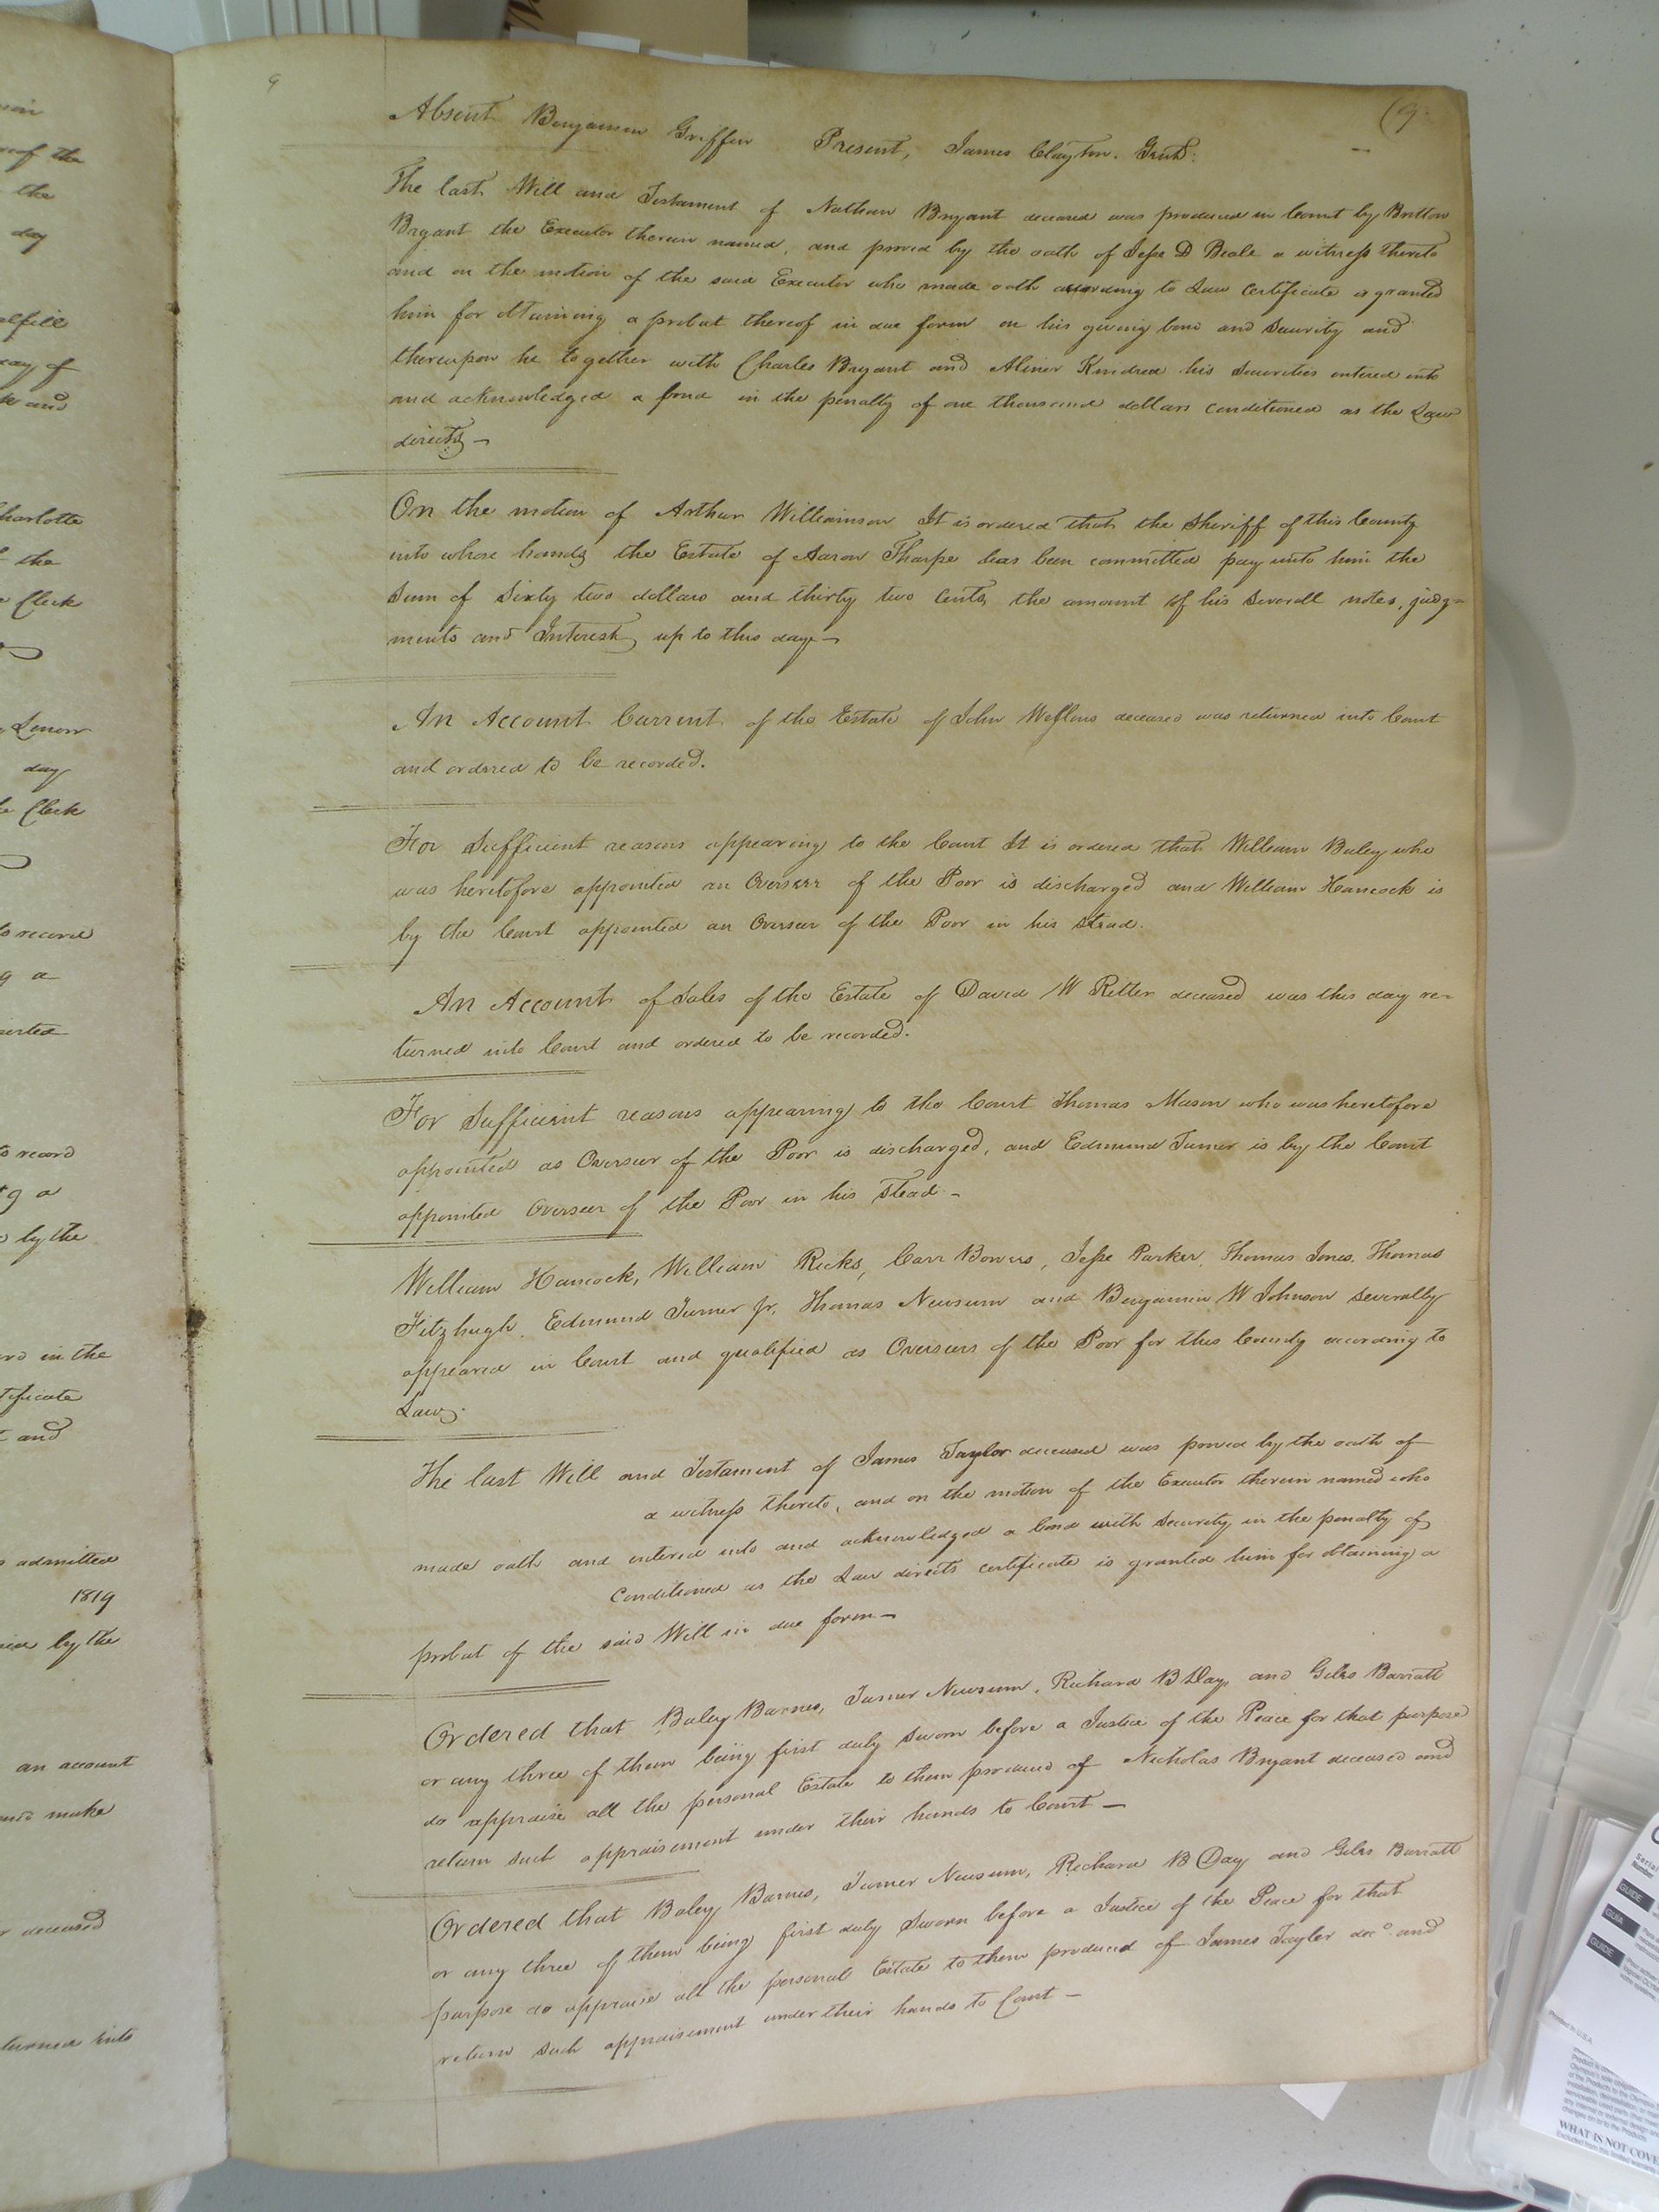 9
(9.
Absent Benjamin Griffin Present, James Clayton. Gent:
The last Will and Testament of Nathan Bryant deceased was produced in Court by Britton
Bryant the Executor therein named, and proved by the oath of Jesse D Beale a witness thereto
and on the motion of the said Executor who made oath according to Law certificate is granted
him for obtaining a probat thereof in due form on his giving bond and security and
thereupon he together with Charles Bryant and Kindred his securities entered into
and acknowledged a bond in the penalty of one thousand dollars conditioned as the Law
directs —
On the motion of Arthur Williamson It is ordered that the Sheriff of this County
into whose hands the Estate of Aaron Tharpe has been committed pay unto him the
Sum of Sixty two dollars and thirty two Cents, the amount of his severall notes, judg-
ments and Interest up to this day —
An Account Current of the Estate of John deceased was returned into Court
and ordered to be recorded.
For Sufficient reasons appearing to the Court It is ordered that William Baley who
was heretofore appointed an Overseer of the Poor is discharged and William Hancock is
by the Court appointed an Overseer of the Poor in his Stead.
An Account of Sales of the Estate of David W Ritter deceased was this day re-
turned into Court and ordered to be recorded.
For Sufficient reasons appearing to the Court Thomas Mason who was heretofore
appointed as Overseer of the Poor is discharged, and Edmund Turner is by the Court
appointed Overseer of the Poor in his Stead —
William Hancock, William Ricks, Carr Bowers, Jesse Parker, Thomas Jones, Thomas
Fitzhugh, Edmund Turner Jr, Thomas Newsum and Benjamin W Johnson severally
appeared in Court and qualified as Overseers of the Poor for this County according to
Law.
The last Will and Testament of James Taylor deceased was proved by the oath of
a witness thereto, and on the motion of the Executor therein named who
made oath and entered into and acknowledged a bond with Security in the penalty of
Conditioned as the Law directs certificate is granted him for obtaining a
probat of the said Will in due form —
Ordered that Baley Barnes, Turner Newsum, Richard B Day, and Giles Barratt
or any three of them being first duly Sworn before a Justice of the Peace for that purpose
do appraise all the personal Estate to them produced of Nicholas Bryant deceased and
return such appraisement under their hands to Court —
Ordered that Baley Barnes, Turner Newsum, Richard B Day and Giles Barratt
or any three of them being first duly Sworn before a Justice of the Peace for that
purpose do appraise all the personal Estate to them produced of James Taylor decd and
return such appraisement under their hands to Court —
of the
the
day
day of
and
Charlotte
the
Clerk
day
Clerk
to record
g a
to record
a
by the
in the
and
admitted
1819
by the
an account
make
deceased
into
GUIDE
GUIA
GUIDE
WHAT IS NOT COVE